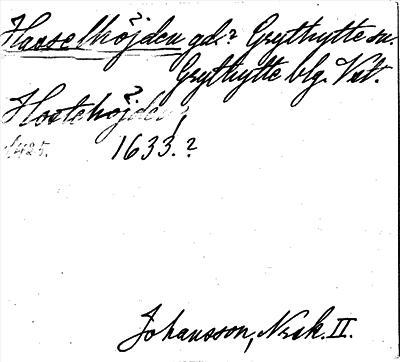 Hasselhöjden gd.? Grythytte sn.
Grythytte blg. Vstm.
Hostehöjden
1425. 1633.?
Johansson, Norsk. II.